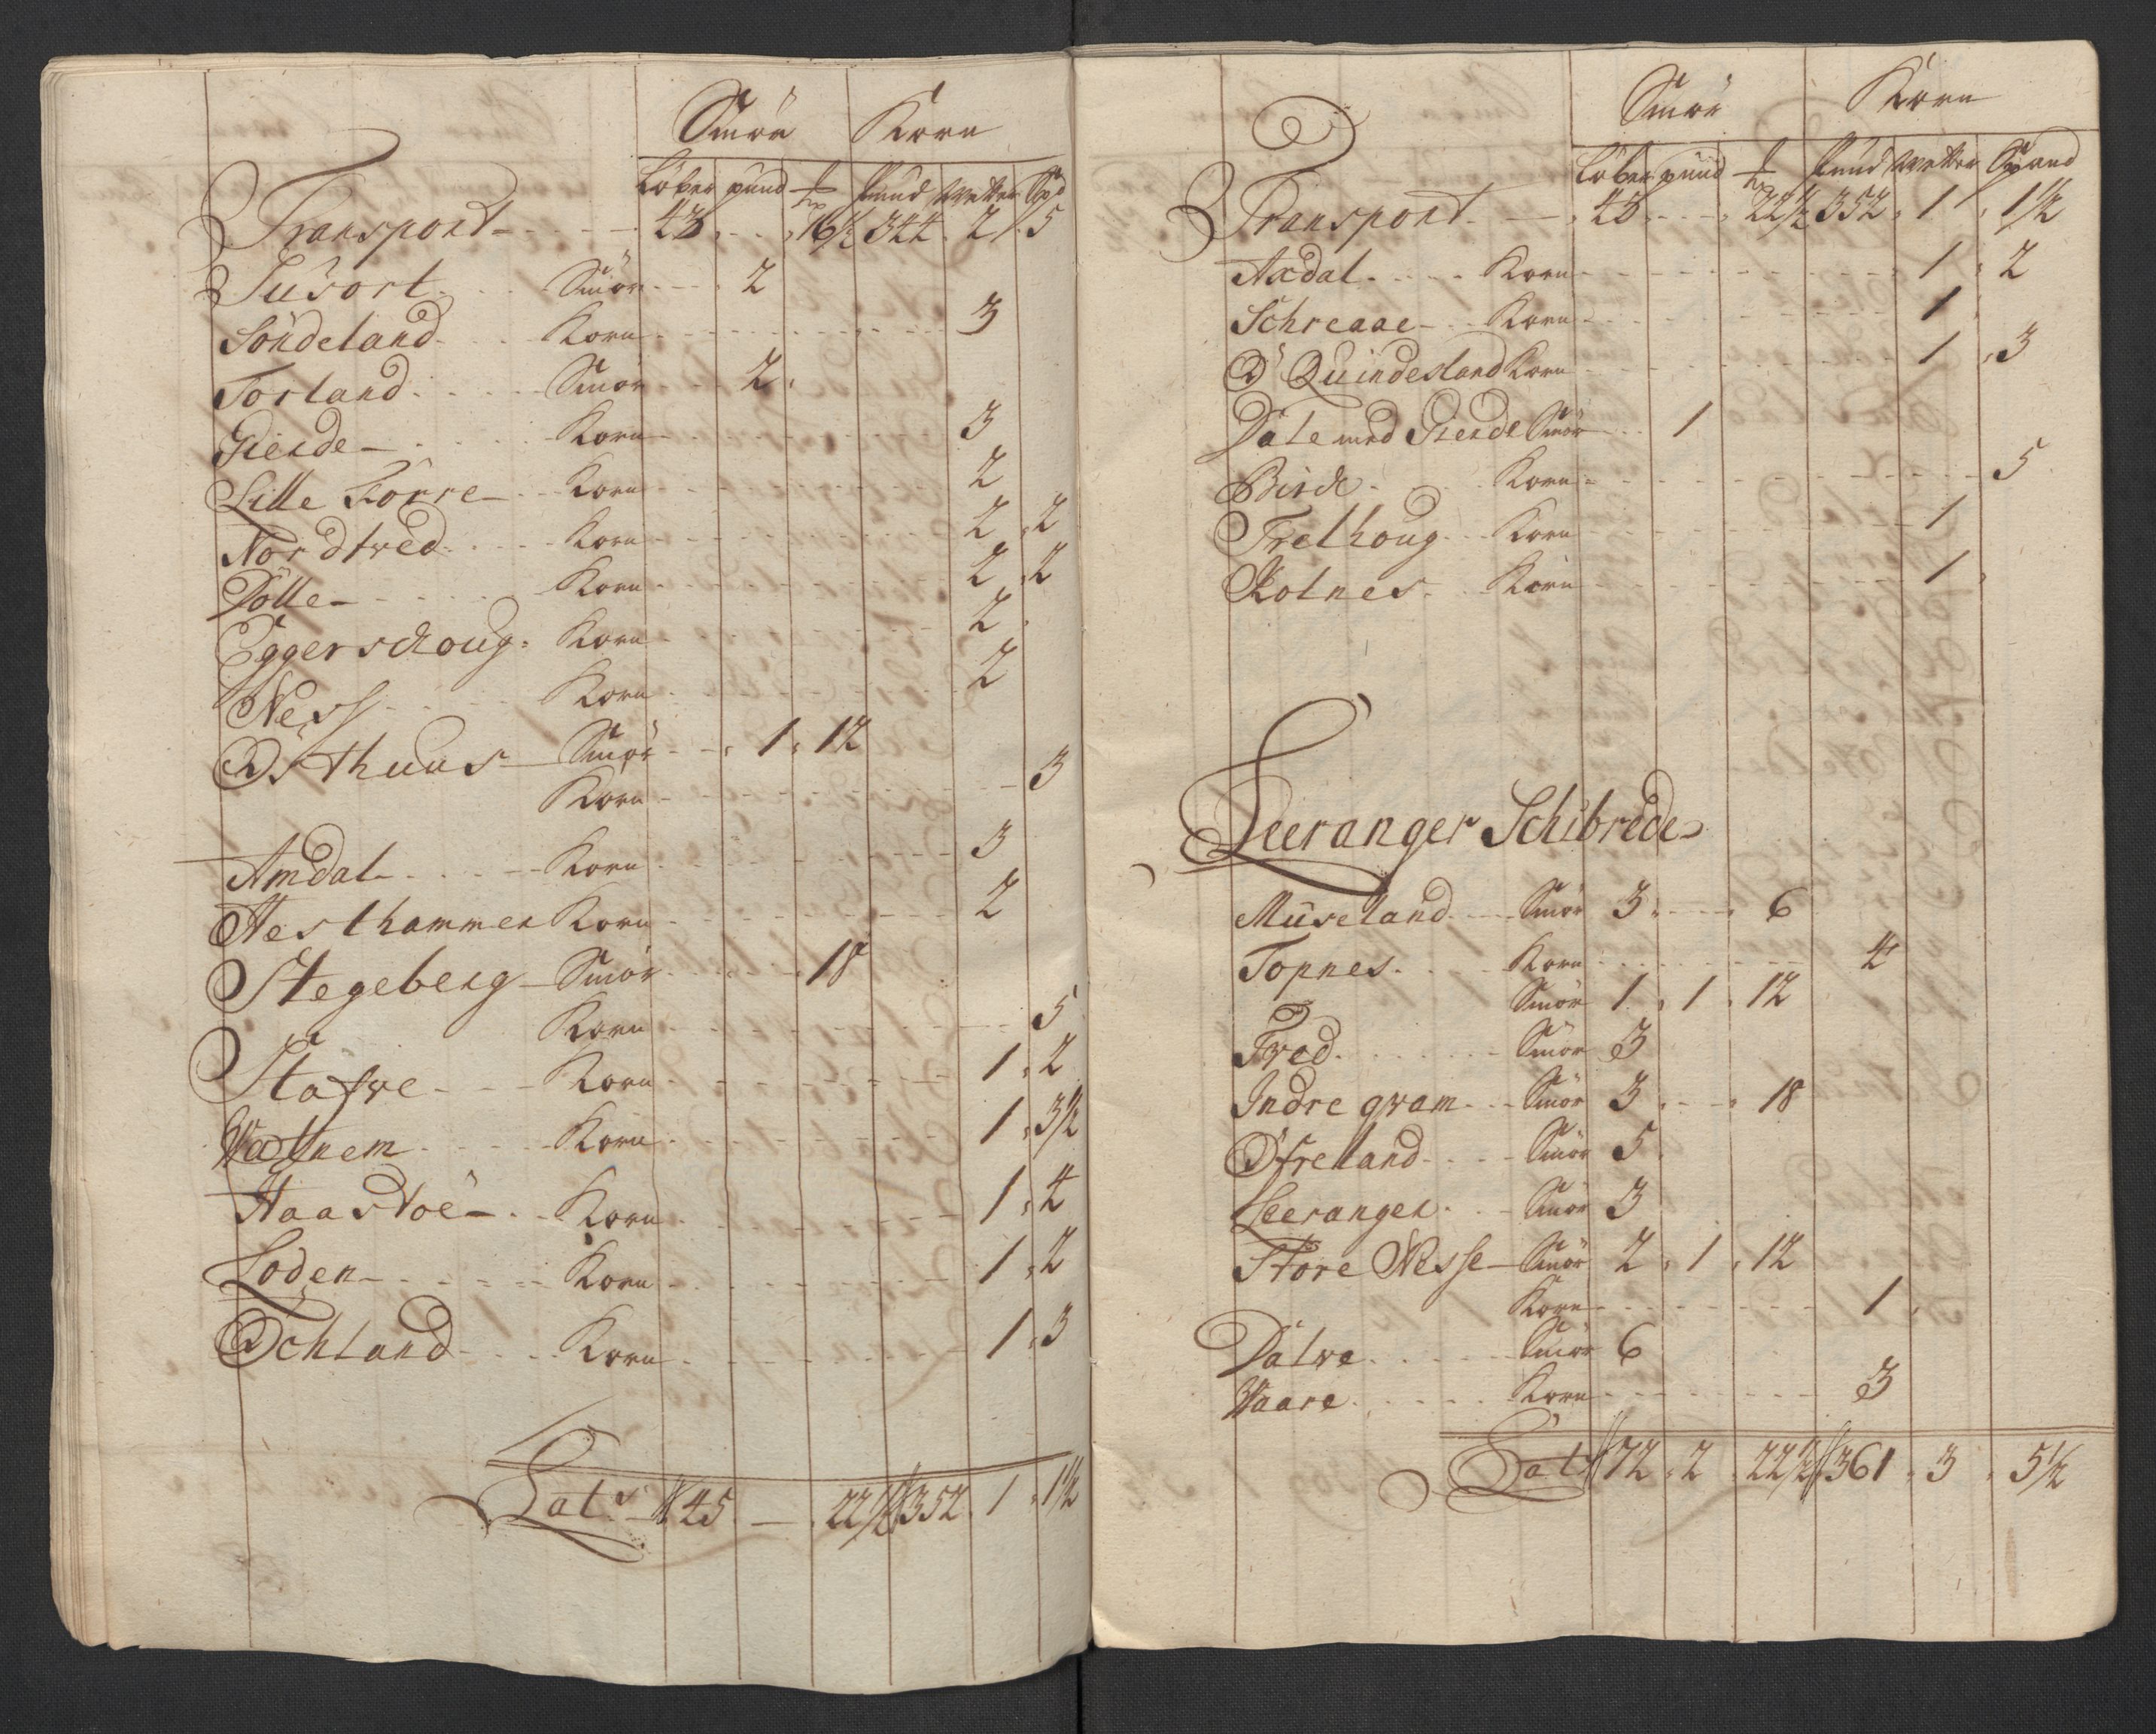 Smör Korn
Löber pund ℔ Pund Wetter Spd
Transport - - - - 43 . . . 16½ 344 . 2 . 5
Susort . . . Smör - - . 2
Söndeland . . . Korn - - - - - - 3
Torland . . . . Smör - - 2 .
Gierde - . . . . Korn - - - - - - 3
Lille Förre - . . Korn - - - - - - 2
Nordtved . . . . Korn - - - - - - 2 . 2
Dölle - . . . . . Korn - - - - - - 2 . 2
Eggerschoug . Korn - - - - - - 2 .
Ness . . . . Korn - - - - - - 2
Osthuus - Smör - - . 1 . 12
Korn - - - - - - 3
Amdal - . . . . Korn - - - - - - 3
Hesthammer Korn - - - - - - 2
Stegeberg - Smör - - - - 18
Korn - - - - - - 5
Stafwe - - - Korn - - - - - - 1 . 2
Wadsnem . . . . Korn - - - - - - 1 . 3½
Haastoe - . . Korn - - - - - - 1 . 4
Loden - . . . . Korn - - - - - - 1 . 2
Ochland - . . . Korn - - - - - - 1 . 3
Lats 45 . — . 22½ 352 . 1 . 1½
Smör Korn
Löber pund ℔ Pund Wetter Spand
Transport . — . 45 . - - . 22½ 352 . 1 . 1½
Axdal . . . . Korn - - - - - - 1 . 2
Schreaae - . . Korn - - - - - - 1 .
Ø Quindesland Korn - - - - - - 1 . 3
Dale med Gierde Smör - - . 1
Birde . . . . Korn - - - - - - 5
Trelhoug . . Korn - - - - - - 1
Kolnes . . Korn - - - - - - 1 .
Leeranger Schibrede
Museland . . . Smör 3 . - - . 6
Topnes . . . . Korn - - - - - - 4
Smör 1 . 1 . 12
Tved . . . . . Smör 3
Indre qvam . . . Smör 3 . - - . 18
Öfreland . . . . Smör 5 .
Leeranger . . . Smör 3
Store Nesse - Smör 2 . 1 . 12
Korn - - - - - - 1 .
Dalwe . . . . . Smör 6
Waare . . . . . Korn - - - - - - 3
Lats 72 . 2 . 22½ 361 . 3 . 5½